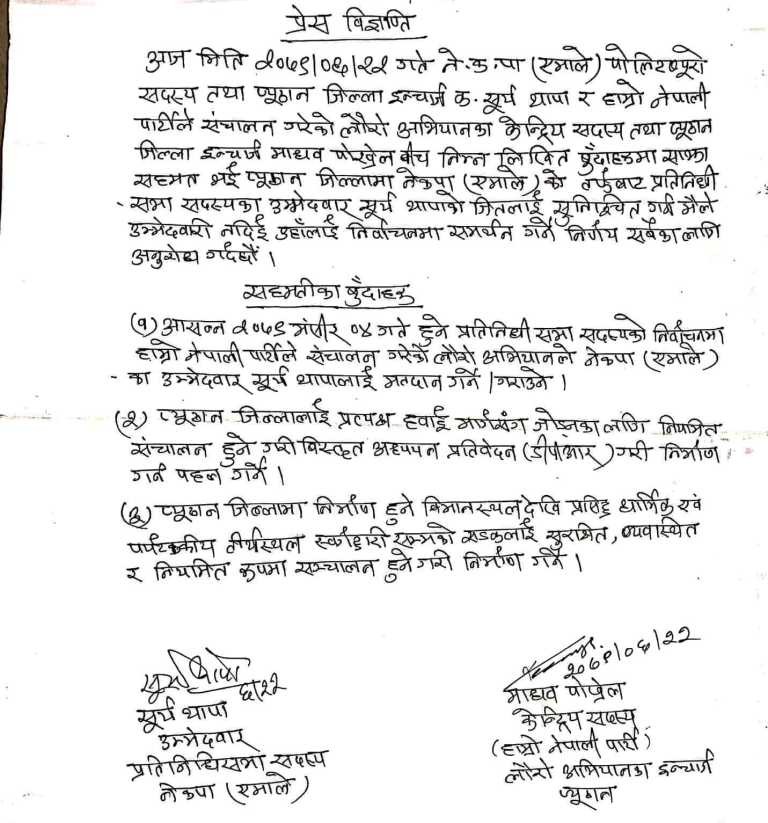 प्रेस विज्ञप्ति
आज मिति २०७९/०६/२२ गते ने.क.पा (एमाले) पोलिटब्यूरो
सदस्य तथा प्यूठान जिल्ला इन्चार्ज क. सूर्य थापा र हाम्रो नेपाली
पार्टीले संचालन गरेको लौरो अभियानका केन्द्रिय सदस्य तथा प्यूठान
जिल्ला इन्चार्ज माधव पोख्रेल बीच निम्न लिखित बुँदाहरुमा साझा
सहमत भई प्यूठान जिल्लामा नेकपा (एमाले) को तर्फबाट प्रतिनिधी
सभा सदस्यका उम्मेदवार सूर्य थापाको जितलाई सुनिश्चित गर्न मैले
उम्मेदवारी नदिई उहाँलाई निर्वाचनमा समर्थन गर्ने निर्णय सबैका लागि
अनुरोध गर्दछौं ।
सहमतीका बुँदाहरु
(१) आसन्न २०७९ मंसीर ०४ गते हुने प्रतिनिधी सभा सदस्यको निर्वाचनमा
हाम्रो नेपाली पार्टीले संचालन गरेको लौरो अभियानले नेकपा (एमाले)
का उम्मेदवार सूर्य थापालाई मतदान गर्ने/गराउने ।
(२) प्यूठान जिल्लालाई प्रत्यक्ष हवाई मार्गसंग जोड्नका लागि नियमित
संचालन हुने गरी विस्तृत अध्ययन प्रतिवेदन (डीपीआर) गरी निर्माण
गर्न पहल गर्ने ।
(३) प्यूठान जिल्लामा निर्माण हुने विमानस्थल देखि प्रसिद्ध धार्मिक एवं
पर्यटकीय तीर्थस्थल स्वर्गद्वारी सम्मको सडकलाई सुरक्षित, व्यवस्थित
र नियमित रुपमा सञ्चालन हुने गरी निर्माण गर्ने ।
सूर्य थापा
६/२२
सूर्य थापा
उम्मेदवार
प्रतिनिधिसभा सदस्य
नेकपा (एमाले)
२०७९/०६/२२
माधव पोख्रेल
केन्द्रिय सदस्य
(हाम्रो नेपाली पार्टी)
लौरो अभियानका इन्चार्ज
प्यूठान